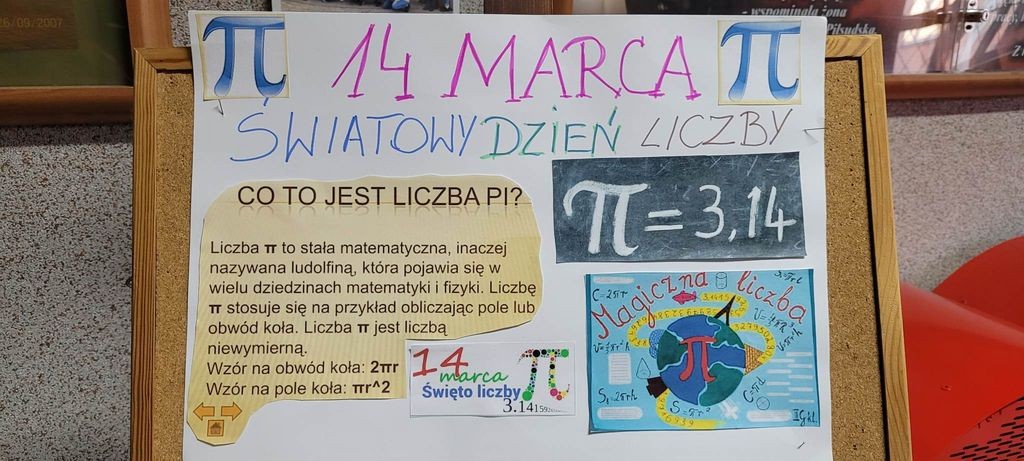 26/09/2007
- wspominała żona
Piłsudska.
π 14 MARCA π
ŚWIATOWY DZIEŃ LICZBY
CO TO JEST LICZBA PI?
Liczba π to stała matematyczna, inaczej
nazywana ludolfiną, która pojawia się w
wielu dziedzinach matematyki i fizyki. Liczbę
π stosuje się na przykład obliczając pole lub
obwód koła. Liczba π jest liczbą
niewymierną.
Wzór na obwód koła: 2πr
Wzór na pole koła: πr^2
π = 3,14
14
marca
Święto liczby
π
3.14159
Magiczna liczba
C=2πr
π
S=πr²
C=πd